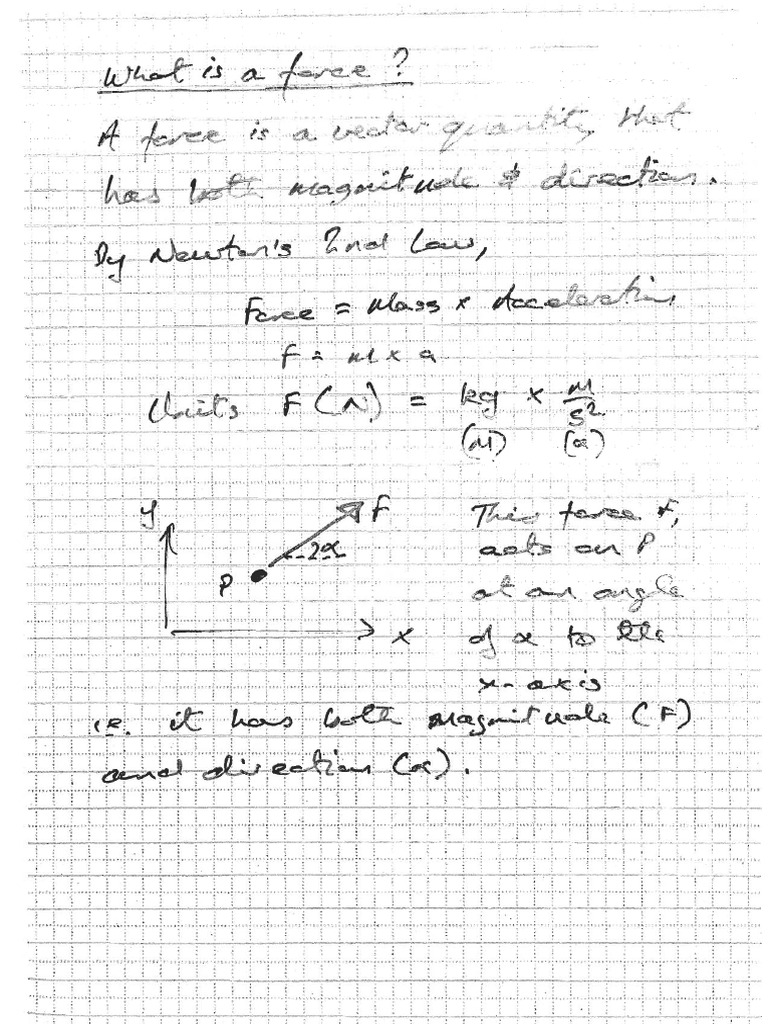 What is a force?
A force is a vector quantity, that
has both magnitude & direction.
By Newton's 2nd Law,
Force = Mass x Acceleration
F = m x a
Units F (N) = kg x m/s²
(m) (a)
y
F
α
P
x
This force F,
acts on P
at an angle
of α to the
x-axis
i.e. it has both magnitude (F)
and direction (α).